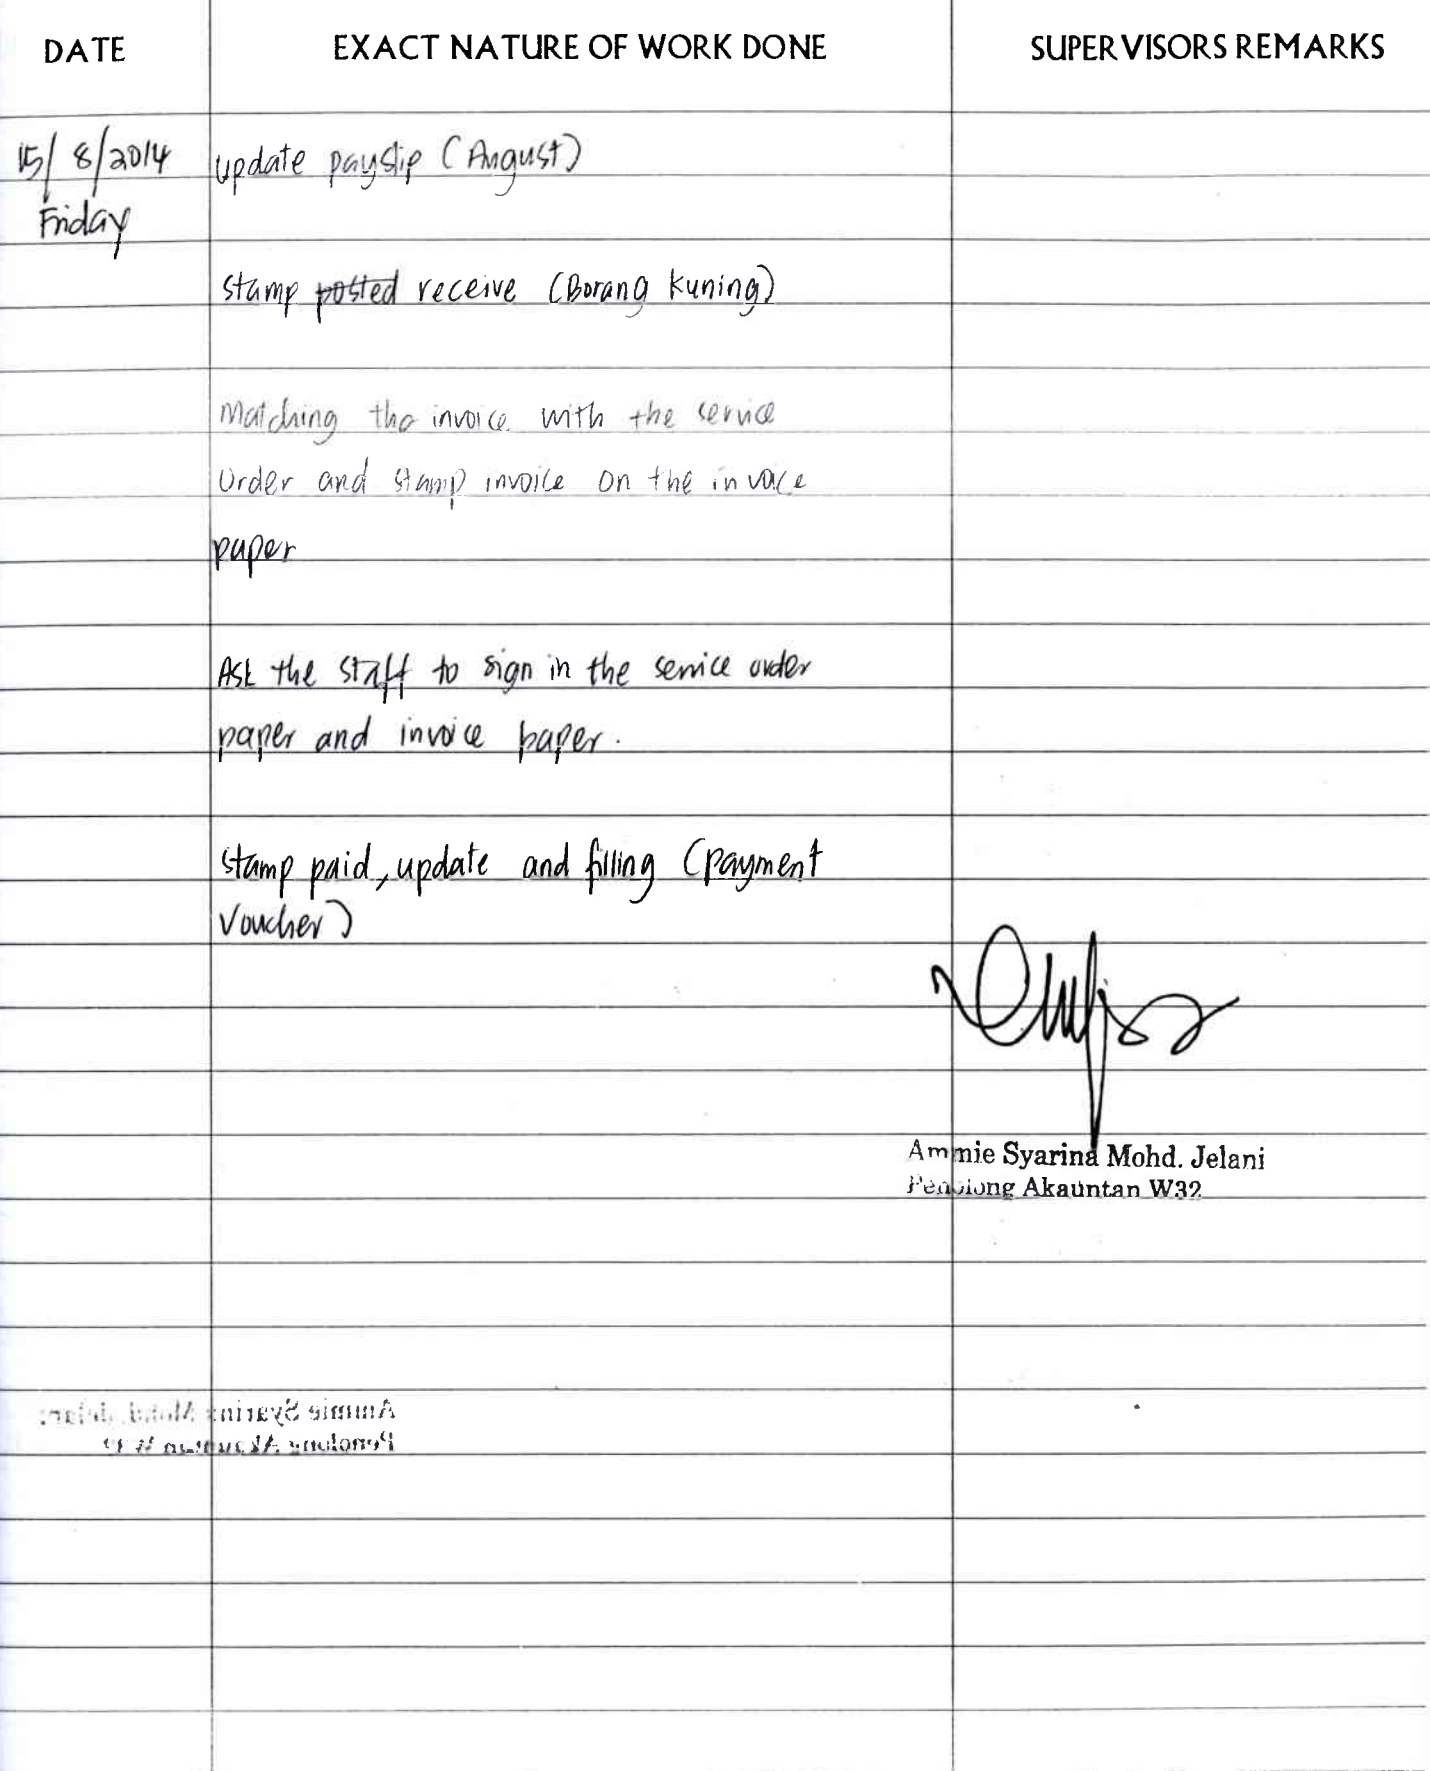 DATE EXACT NATURE OF WORK DONE SUPERVISORS REMARKS
15/8/2014 update payslip (August)
Friday
stamp posted receive (Borang Kuning)
Matching the invoice with the service
Order and stamp invoice on the invoice
paper
Ask the staff to sign in the service order
paper and invoice paper.
stamp paid, update and filling (payment
Voucher)
Ammie Syarina Mohd. Jelani
Penolong Akauntan W32
Ammie Syarina Mohd. Jelani
Penolong Akauntan W32